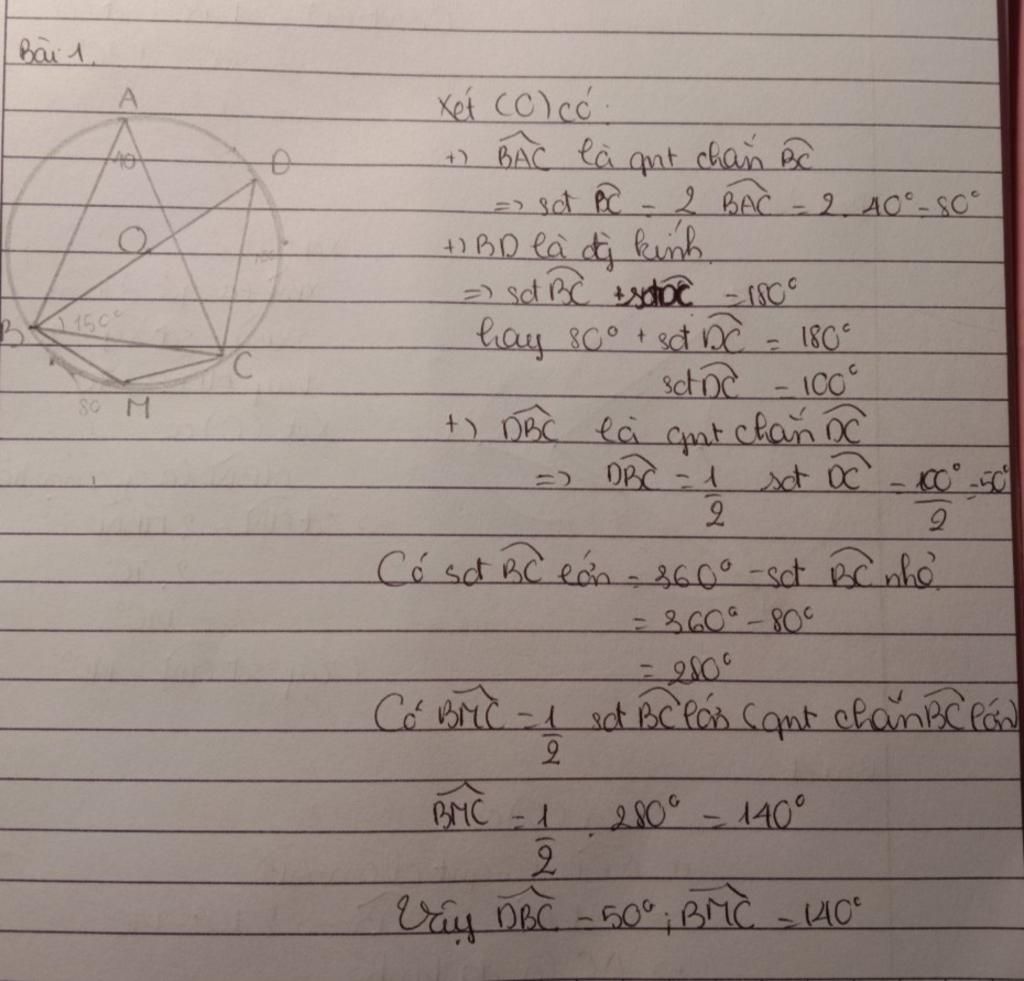 Bài 1.
A
40
D
O
B
150°
C
80
M
Xét (O) có:
+) BAC là gnt chắn BC
=> sđ BC = 2 BAC = 2. 40° = 80°
+) BD là đg kính
=> sđ BC + sđ DC = 180°
hay 80° + sđ DC = 180°
sđ DC = 100°
+) DBC là gnt chắn DC
=> DBC = 1/2 sđ DC = 100°/2 = 50°
Có sđ BC lớn = 360° - sđ BC nhỏ
= 360° - 80°
= 280°
Có BMC = 1/2 sđ BC lớn (gnt chắn BC lớn)
BMC = 1/2 . 280° = 140°
Vậy DBC = 50°; BMC = 140°